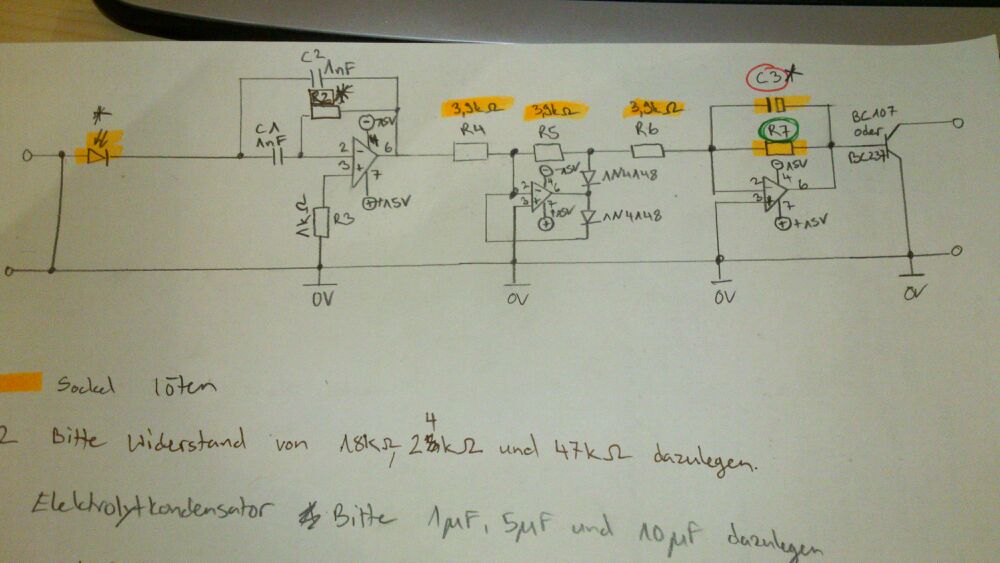 C2
1nF
C3*
R2*
3,9kΩ 3,9kΩ 3,9kΩ
R4 R5 R6 R7
BC107
oder
BC237
*
C1
1nF
-15V
2 6
3 4 7
+15V
1kΩ R3
-15V
2 4 6
3 7
+15V
1N4148
1N4148
-15V
2 4 6
3 7
+15V
0V 0V 0V 0V
Sockel löten
2 Bitte Widerstand von 18kΩ, 24kΩ und 47kΩ dazulegen.
Elektrolytkondensator * Bitte 1µF, 5µF und 10µF dazulegen